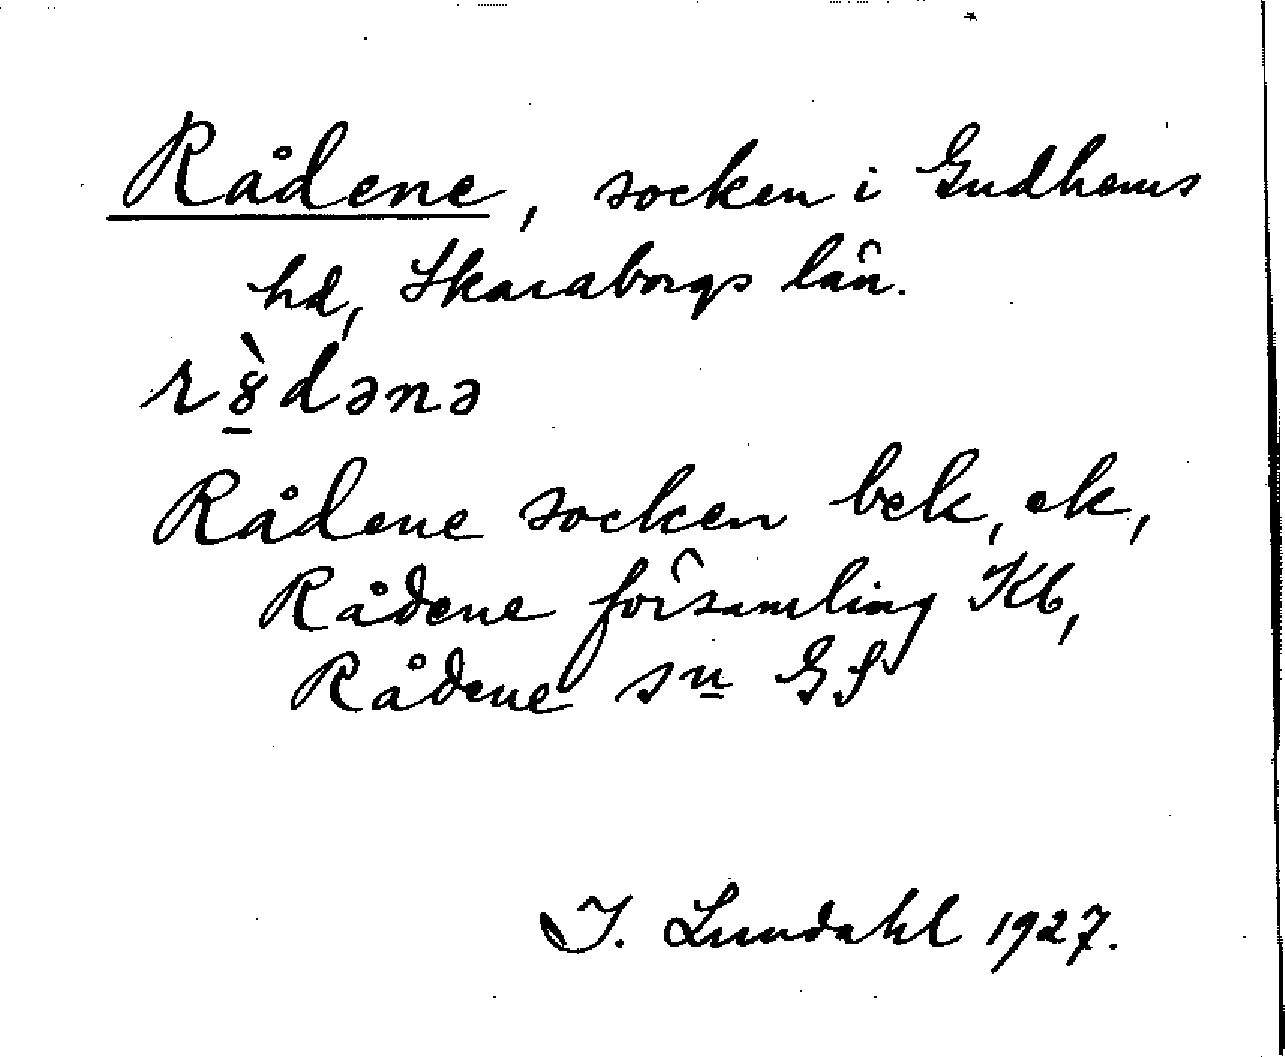 Rådene, socken i Gudhems
hd, Skaraborgs län.
r8̱̀dənə
Rådene socken bek, ek,
Rådene församling Kb,
Rådene sn GS
I. Lundahl 1927.